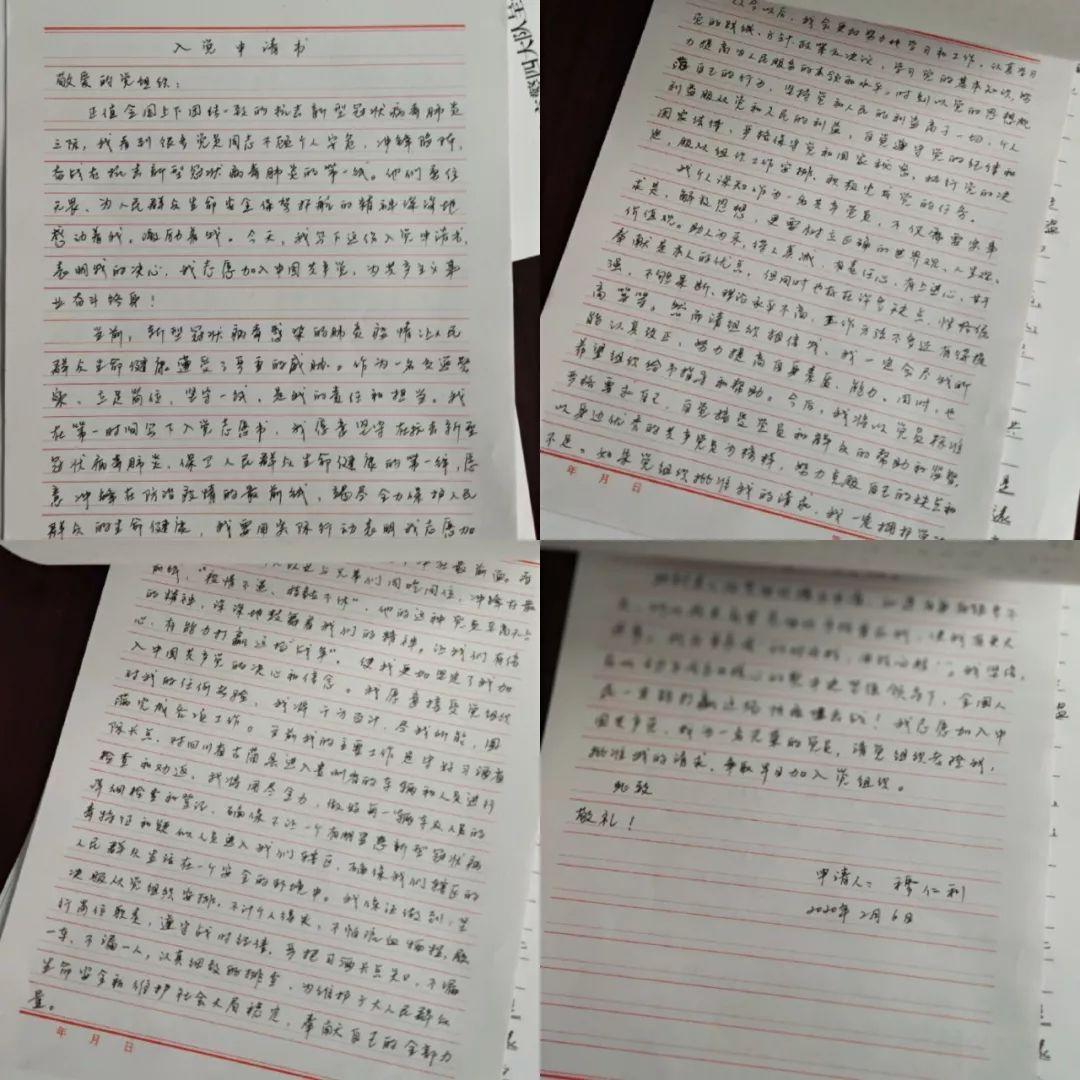 入党申请书
敬爱的党组织：
正值全国上下团结一致的抗击新型冠状病毒肺炎
之际，我看到很多党员同志不顾个人安危，冲锋陷阵，
奋战在抗击新型冠状病毒肺炎的第一线。他们责任
无畏、为人民群众生命安全保驾护航的精神深深地
感动着我，激励着我。今天，我写下这份入党申请书，
表明我的决心，我志愿加入中国共产党，为共产主义事
业奋斗终身！
当前，新型冠状病毒感染的肺炎疫情让人民
群众生命健康遭受了严重的威胁。作为一名交通警
察，立足岗位，坚守一线，是我的责任和担当。我
在第一时间写下入党志愿书，我愿意坚守在抗击新型
冠状病毒肺炎，保卫人民群众生命健康的第一线，愿
意冲锋在防治疫情的最前线，竭尽全力保护人民
群众的生命健康，我要用实际行动表明我志愿加
从今以后，我会更加努力地学习和工作，认真学习
党的路线、方针、政策及决议，学习党的基本知识，努
力提高为人民服务的本领和水平。时刻以党的思想规
范自己的行为，坚持党和人民的利益高于一切，个人
利益服从党和人民的利益，自觉遵守党的纪律和
国家法律，严格保守党和国家秘密，执行党的决
定，服从组织工作安排，积极完成党的任务。
我个人深知作为一名共产党员，不仅需要实事
求是，解放思想，更要树立正确的世界观、人生观、
价值观。助人为乐，待人真诚，有责任心，有上进心，甘于
奉献是本人的优点，但同时也存在许多缺点，性格倔
强，不够果断，理论水平不高，工作方法不多还有待提
高等等。然而请组织相信我，我一定会尽我所
能认真改正，努力提高自身素质、能力。同时，也
希望组织给予指导和帮助。今后，我将以党员标准
严格要求自己，自觉接受党员和群众的帮助和监督，
以身边优秀的共产党员为榜样，努力克服自己的缺点和
不足。如果党组织批准我的请求，我一定拥护党
年 月 日
兄弟们同吃同住，冲锋在最
前线，“疫情不退，
的精神，深深地鼓舞着我们的精神，让我们有信
心、有能力打赢这场“战争”，使我更加坚定了我加
入中国共产党的决心和信念。我愿意接受党组织
对我的任何考验，我将千方百计，尽我所能，圆
满完成各项工作。当前我的主要工作是守好习酒省
际卡点，对四川省古蔺县进入贵州省的车辆和人员进行
检查和劝返，我将用尽全力，做好每一辆车及人员的
详细检查和登记，确保不让一个有携带患新型冠状病
毒特征和疑似人员进入我们辖区，确保我们辖区的
人民群众生活在一个安全的环境中。我保证做到，坚
决服从党组织安排，不计个人得失，不怕流血牺牲，履
行岗位职责，遵守战时纪律，严把习酒卡点关口，不漏
一车、不漏一人，认真细致的排查，为维护广大人民群众
生命安全和维护社会大局稳定，奉献自己的全部力
量。
年 月 日
我坚信，
领导下，全国人
民一定能打赢这场
！我志愿加入中
国共产党，成为一名光荣的党员，请党组织考验我，
批准我的请求，争取早日加入党组织。
此致
敬礼！
申请人：穆仁利
2020年2月6日